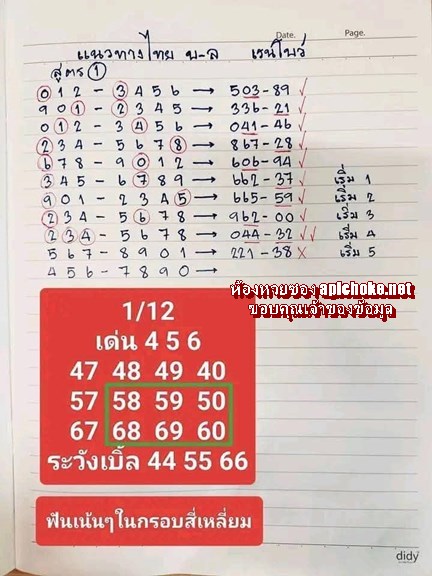 Date. Page.
แนวทางไทย บ-ล เรนโบว์
สูตร 1
012 - 3456 → 503-89 ✓
901 - 2345 → 336-21 ✓
012 - 3456 → 041-46 ✓
234 - 5678 → 867-28 ✓
678 - 9012 → 606-94 ✓
345 - 6789 → 662-37 ✓ เริ่ม 1
901 - 2345 → 665-59 ✓ เริ่ม 2
234 - 5678 → 962-00 ✓ เริ่ม 3
234 - 5678 → 044-32 ✓✓ เริ่ม 4
567 - 8901 → 221-38 × เริ่ม 5
456 - 7890 →
ห้องหวยซอง apichoke.net
ขอบคุณเจ้าของข้อมูล
1/12
เด่น 4 5 6
47 48 49 40
57 58 59 50
67 68 69 60
ระวังเบิ้ล 44 55 66
ฟันเน้นๆในกรอบสี่เหลี่ยม
didy